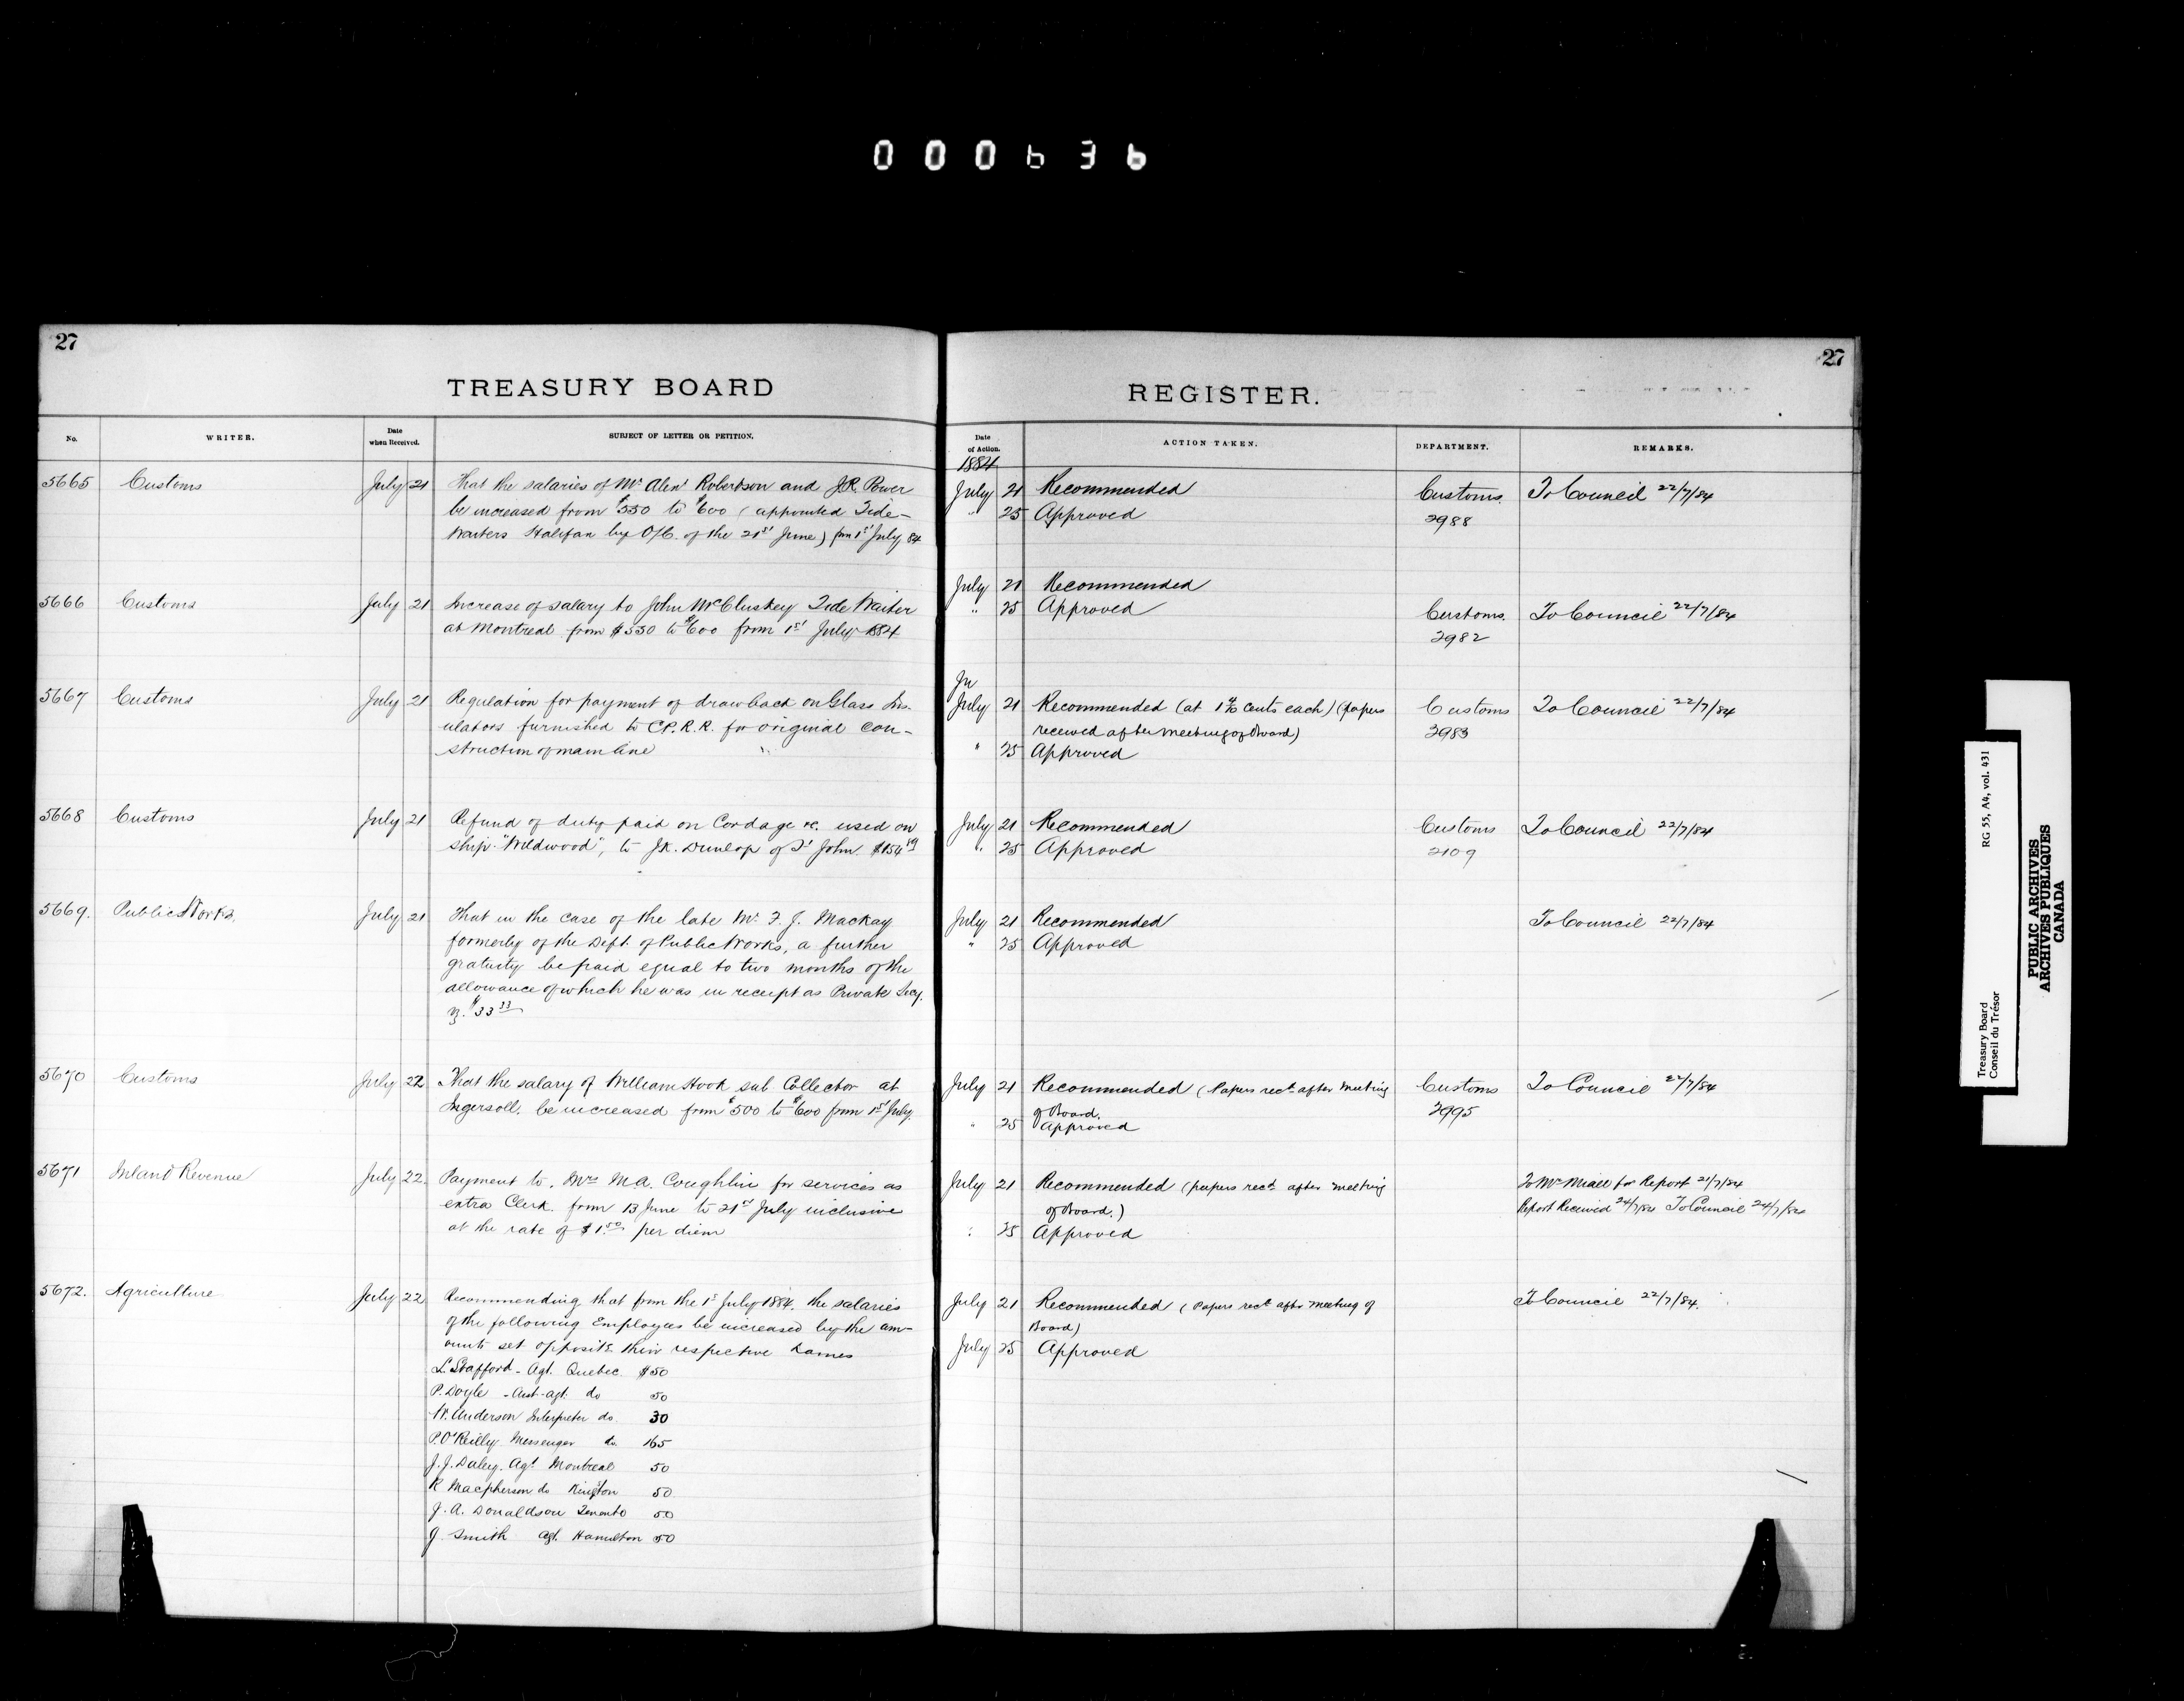 000636
27
TREASURY BOARD
No.
WRITER.
Date
when Received.
SUBJECT OF LETTER OR PETITION.
5665 Customs July 21 That the salaries of Mr Alexr Robertson and J.R. Power
be increased from $550 to $600 (appointed Tide-
Waiters Halifax by O/C. of the 21st June) from 1st July 84
5666 Customs July 21 Increase of salary to John McCluskey Tide Waiter
at Montreal from $550 to $600 from 1st July 1884
5667 Customs July 21 Regulation for payment of drawback on Glass Ins-
ulators furnished to C.P.R.R. for original con-
struction of main line
5668 Customs July 21 Refund of duty paid on Cordage &c. used on
ship "Wildwood", to J.K. Dunlop of St John. $154 19
5669. Public Works. July 21 That in the case of the late Mr. F. J. Mackay
formerly of the Dept. of Public Works, a further
gratuity be paid equal to two months of the
allowance of which he was in receipt as Private Secy.
Viz. $33 33
5670 Customs July 22 That the salary of William Hook sub Collector at
Ingersoll, be increased from $500 to $600 from 1st July.
5671 Inland Revenue July 22. Payment to, Mrs M.A. Coughlin for services as
extra Clerk. from 13 June to 21st July inclusive
at the rate of $1.50 per diem
5672. Agriculture July 22 Recommending that from the 1st July 1884. the salaries
of the following Employees be increased by the am-
ounts set opposite their respective names
L. Stafford - Agt. Quebec. $50
P. Doyle - Asst. agt. do 50
W. Anderson Interpreter do. 30
P. O'Reilly Messenger do. 165
J.J. Daley. Agt. Montreal 50
R Macpherson do Kingston 50
J. A. Donaldson Toronto 50
J. Smith Agt. Hamilton 50
27
REGISTER.
Date
of Action.
ACTION TAKEN.
DEPARTMENT.
REMARKS.
1884
July 21 Recommended Customs. To Council 22/7/84
" 25 Approved 2988
July 21 Recommended
" 25 Approved Customs. To Council 22/7/84
2982
Ju
July 21 Recommended (at 1 4/10 cents each) (papers Customs To Council 22/7/84
received after meeting of Board) 2983
" 25 Approved
July 21 Recommended Customs To Council 22/7/84
" 25 Approved 2109
July 21 Recommended To Council 22/7/84
" 25 Approved
July 21 Recommended (Papers recd. after meeting Customs To Council 22/7/84
of Board. 2995
" 25 Approved
July 21 Recommended (papers recd. after meeting To Mr Miall for Report 21/7/84
of Board.) Report Received 24/7/84 To Council 24/7/84
" 25 Approved
July 21 Recommended (Papers recd. after meeting of To Council 22/7/84.
Board)
July 25 Approved
Treasury Board RG 55, A4, vol. 431
Conseil du Trésor
PUBLIC ARCHIVES
ARCHIVES PUBLIQUES
CANADA